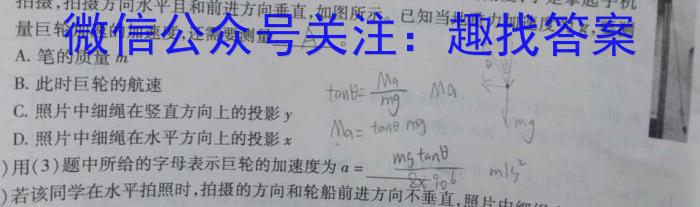 拍摄,拍摄方向水平且和前进方向垂直,如图所示。已知当
量巨轮 的加速度,还需要测量
微信公众号关注：趣找答案
A. 笔的质量 m
B. 此时巨轮的航速
C. 照片中细绳在竖直方向上的投影 y
D. 照片中细绳在水平方向上的投影 x
tanθ= Ma/mg Ma
Ma= tanθ mg
mg
)用(3)题中所给的字母表示巨轮的加速度为 a = mgtanθ m/s²
)若该同学在水平拍照时,拍摄的方向和轮船前进方向不垂直,照片中细